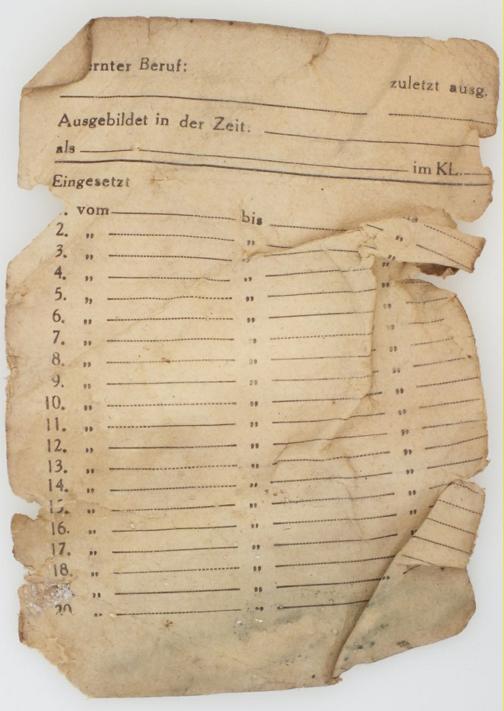 ernter Beruf:
zuletzt ausg.
Ausgebildet in der Zeit:
als im KL.
Eingesetzt
. vom bis "
2. " " "
3. "
4. " " "
5. " " "
6. " " "
7. " " "
8. " " "
9. " " "
10. " " "
11. " " "
12. " " "
13. " " "
14. " " "
15. " " "
16. " " "
17. " "
18. " "
" "
20 " "